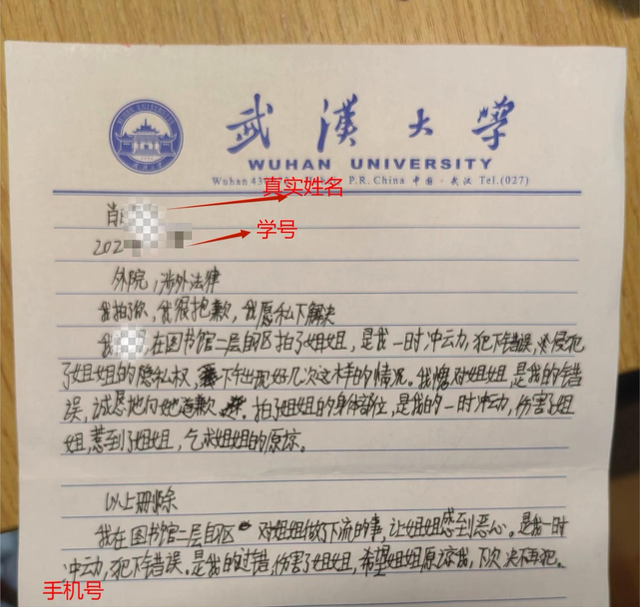 武漢大学
WUHAN UNIVERSITY
Wuhan 43 P.R.China 中国·武汉 Tel.(027)
真实姓名
肖
202
学号
外院,涉外法律
我拍了你,我很抱歉,我愿私下解决
我 ,在图书馆二层自区拍了姐姐,是我一时冲动,犯下错误,侵犯
了姐姐的隐私权,下午出现好几次这样的情况。我愧对姐姐,是我的错
误,诚恳地向她道歉,拍了姐姐的身体部位,是我的一时冲动,伤害了姐
姐,惹到了姐姐,乞求姐姐的原谅。
以上删除
我在图书馆二层自区对姐姐做了下流的事,让姐姐感到恶心。是我一时
冲动,犯下错误。是我的过错,伤害了姐姐,希望姐姐原谅我,下次决不再犯。
手机号